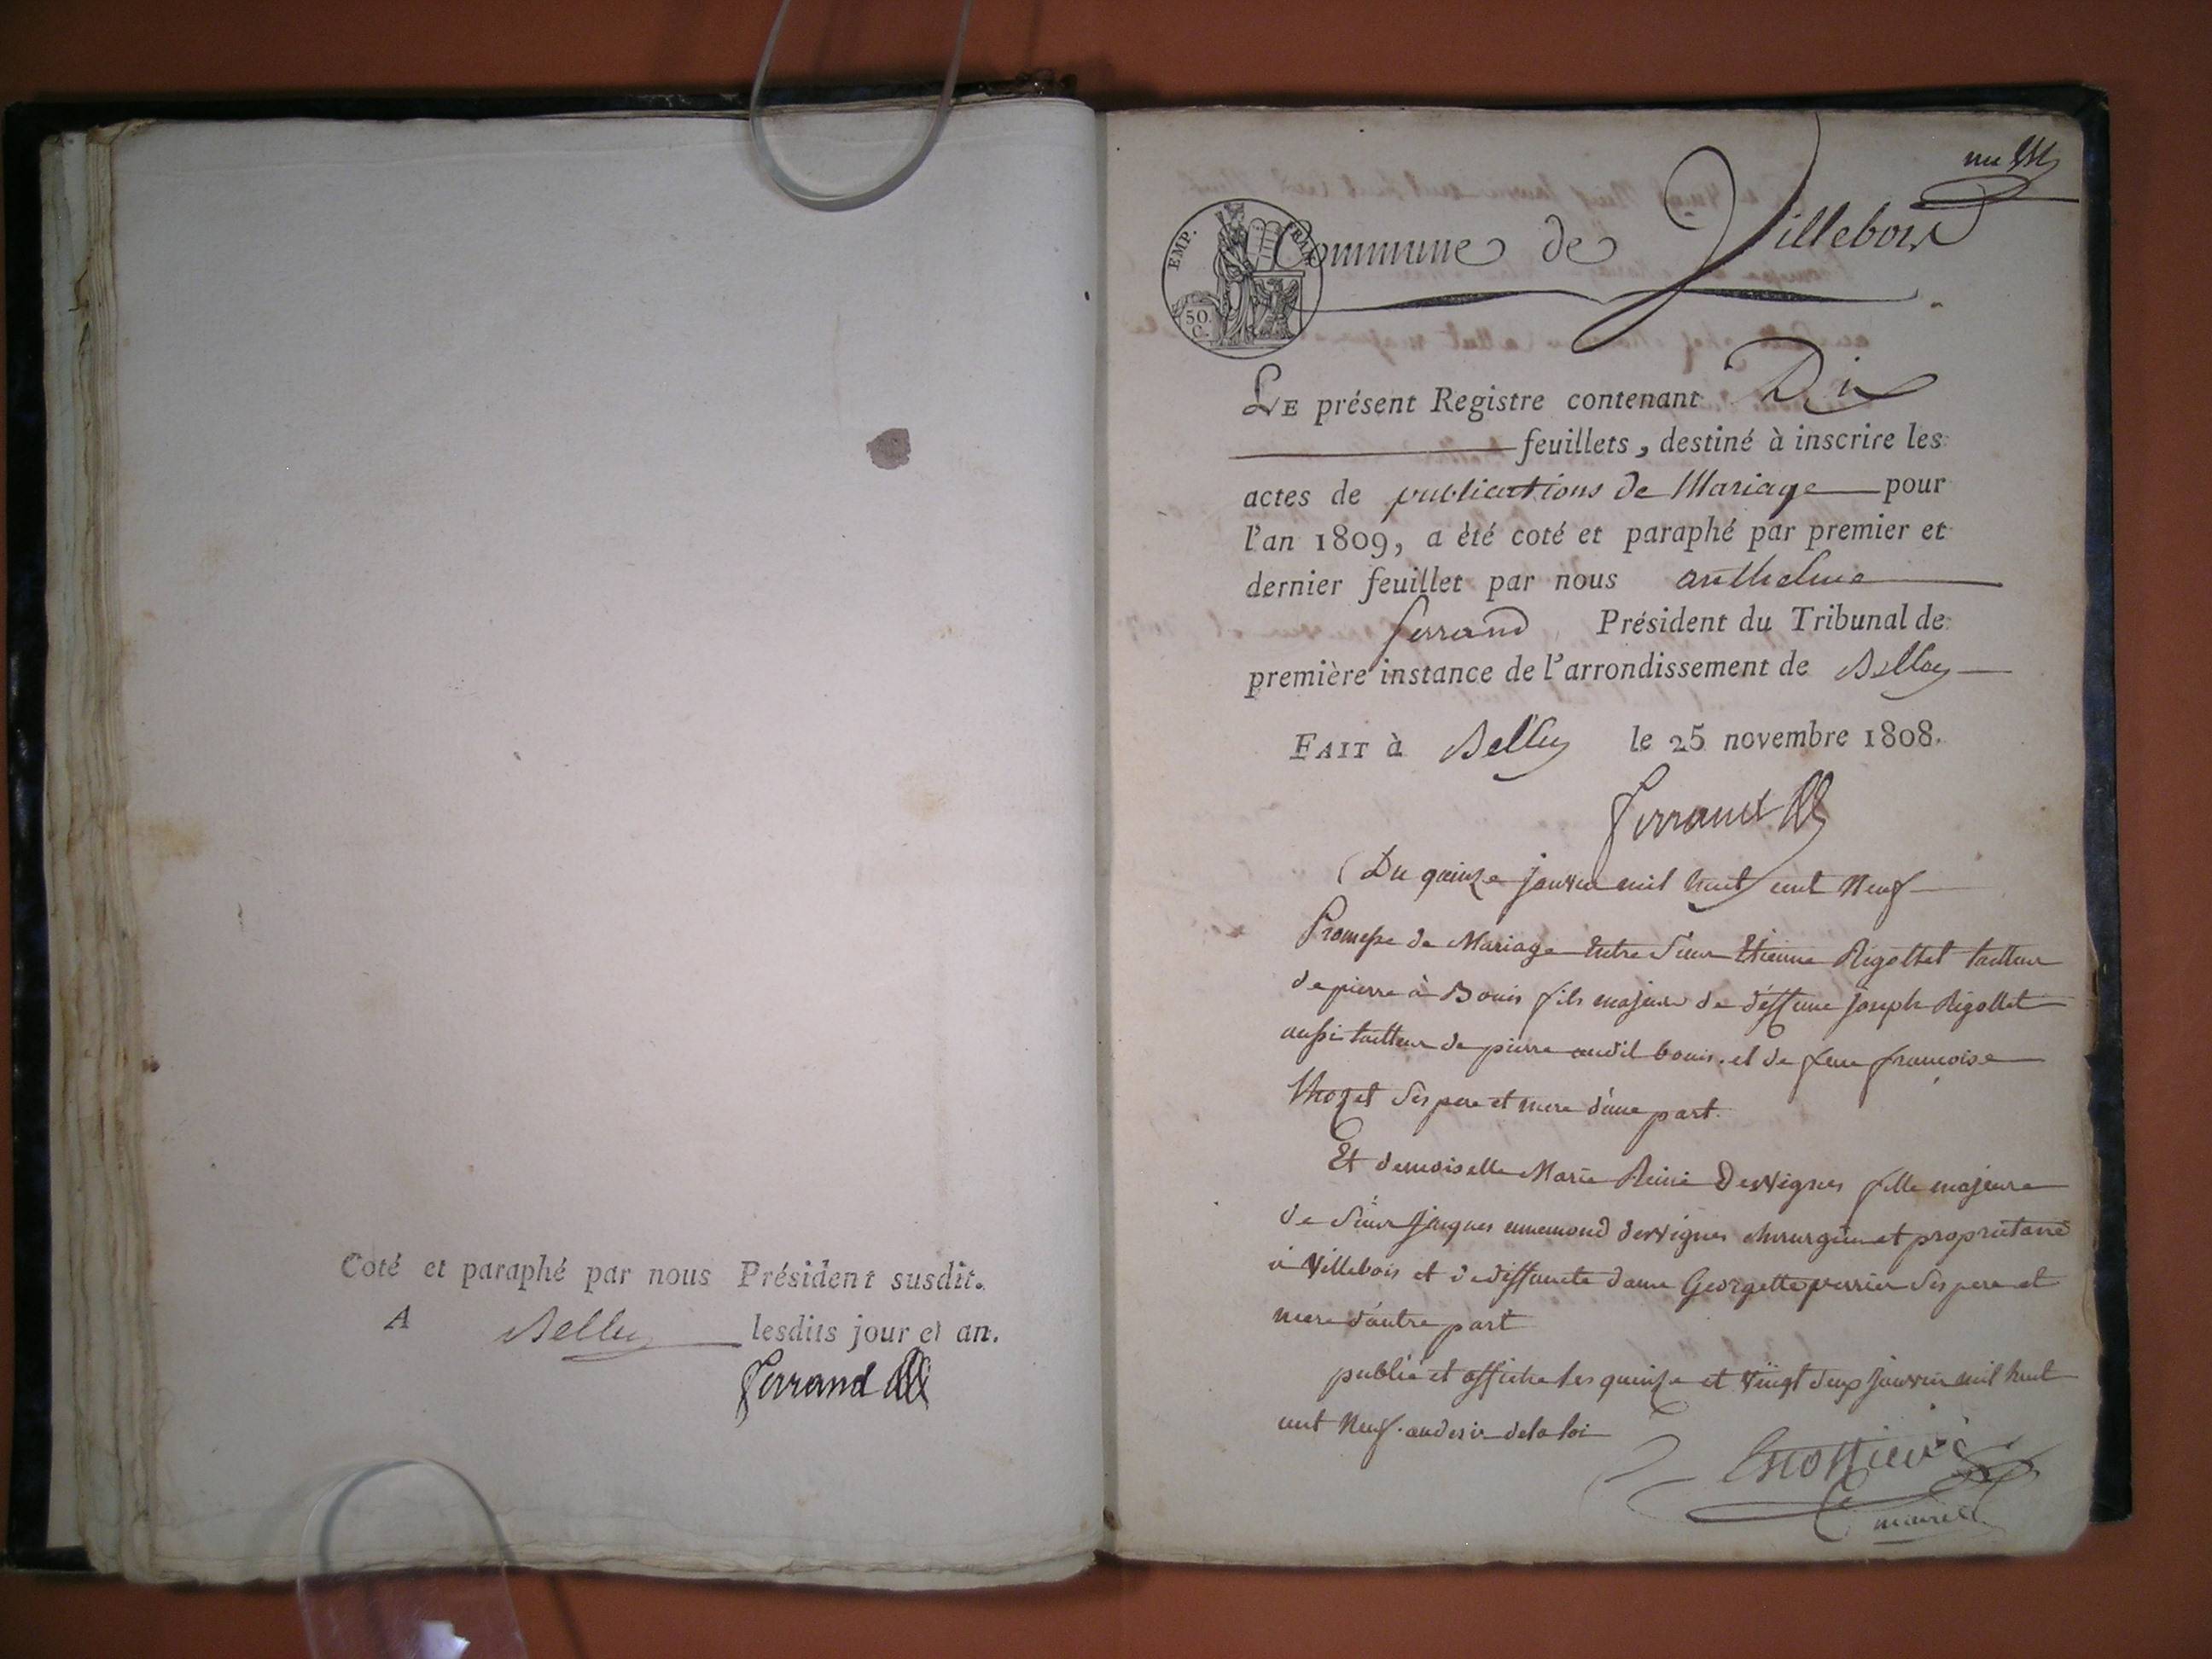 Coté et paraphé par nous Président susdit.
A Belley lesdits jour et an.
Ferrand
EMP. FRAN.
50.
C.
Commune de Villebois
LE présent Registre contenant Dix
feuillets, destiné à inscrire les
actes de publications de Mariage pour
l'an 1809, a été coté et paraphé par premier et
dernier feuillet par nous anthelme
ferrand Président du Tribunal de
première instance de l'arrondissement de Belley
FAIT à Belley le 25 novembre 1808.
Ferrand
Du quinze janvier mil huit cent Neuf
Promesse de Mariage Entre Sieur Etienne Rigollet tailleur
de pierre à Bouis fils majeur de deffunt joseph Rigollet
aussi tailleur de pierre audit bouis. et de feue françoise
Thozet ses pere et mere d'une part.
Et demoiselle Marie Reine Desvignes fille majeure
de Sieur jacques ennemond desvignes chirurgien et proprietaire
à Villebois et de deffuncte dame Georgette perrier ses pere et
mere d'autre part
publié et affiché les quinze et vingt deux janvier mil huit
cent Neuf. au desir de la loi
maire